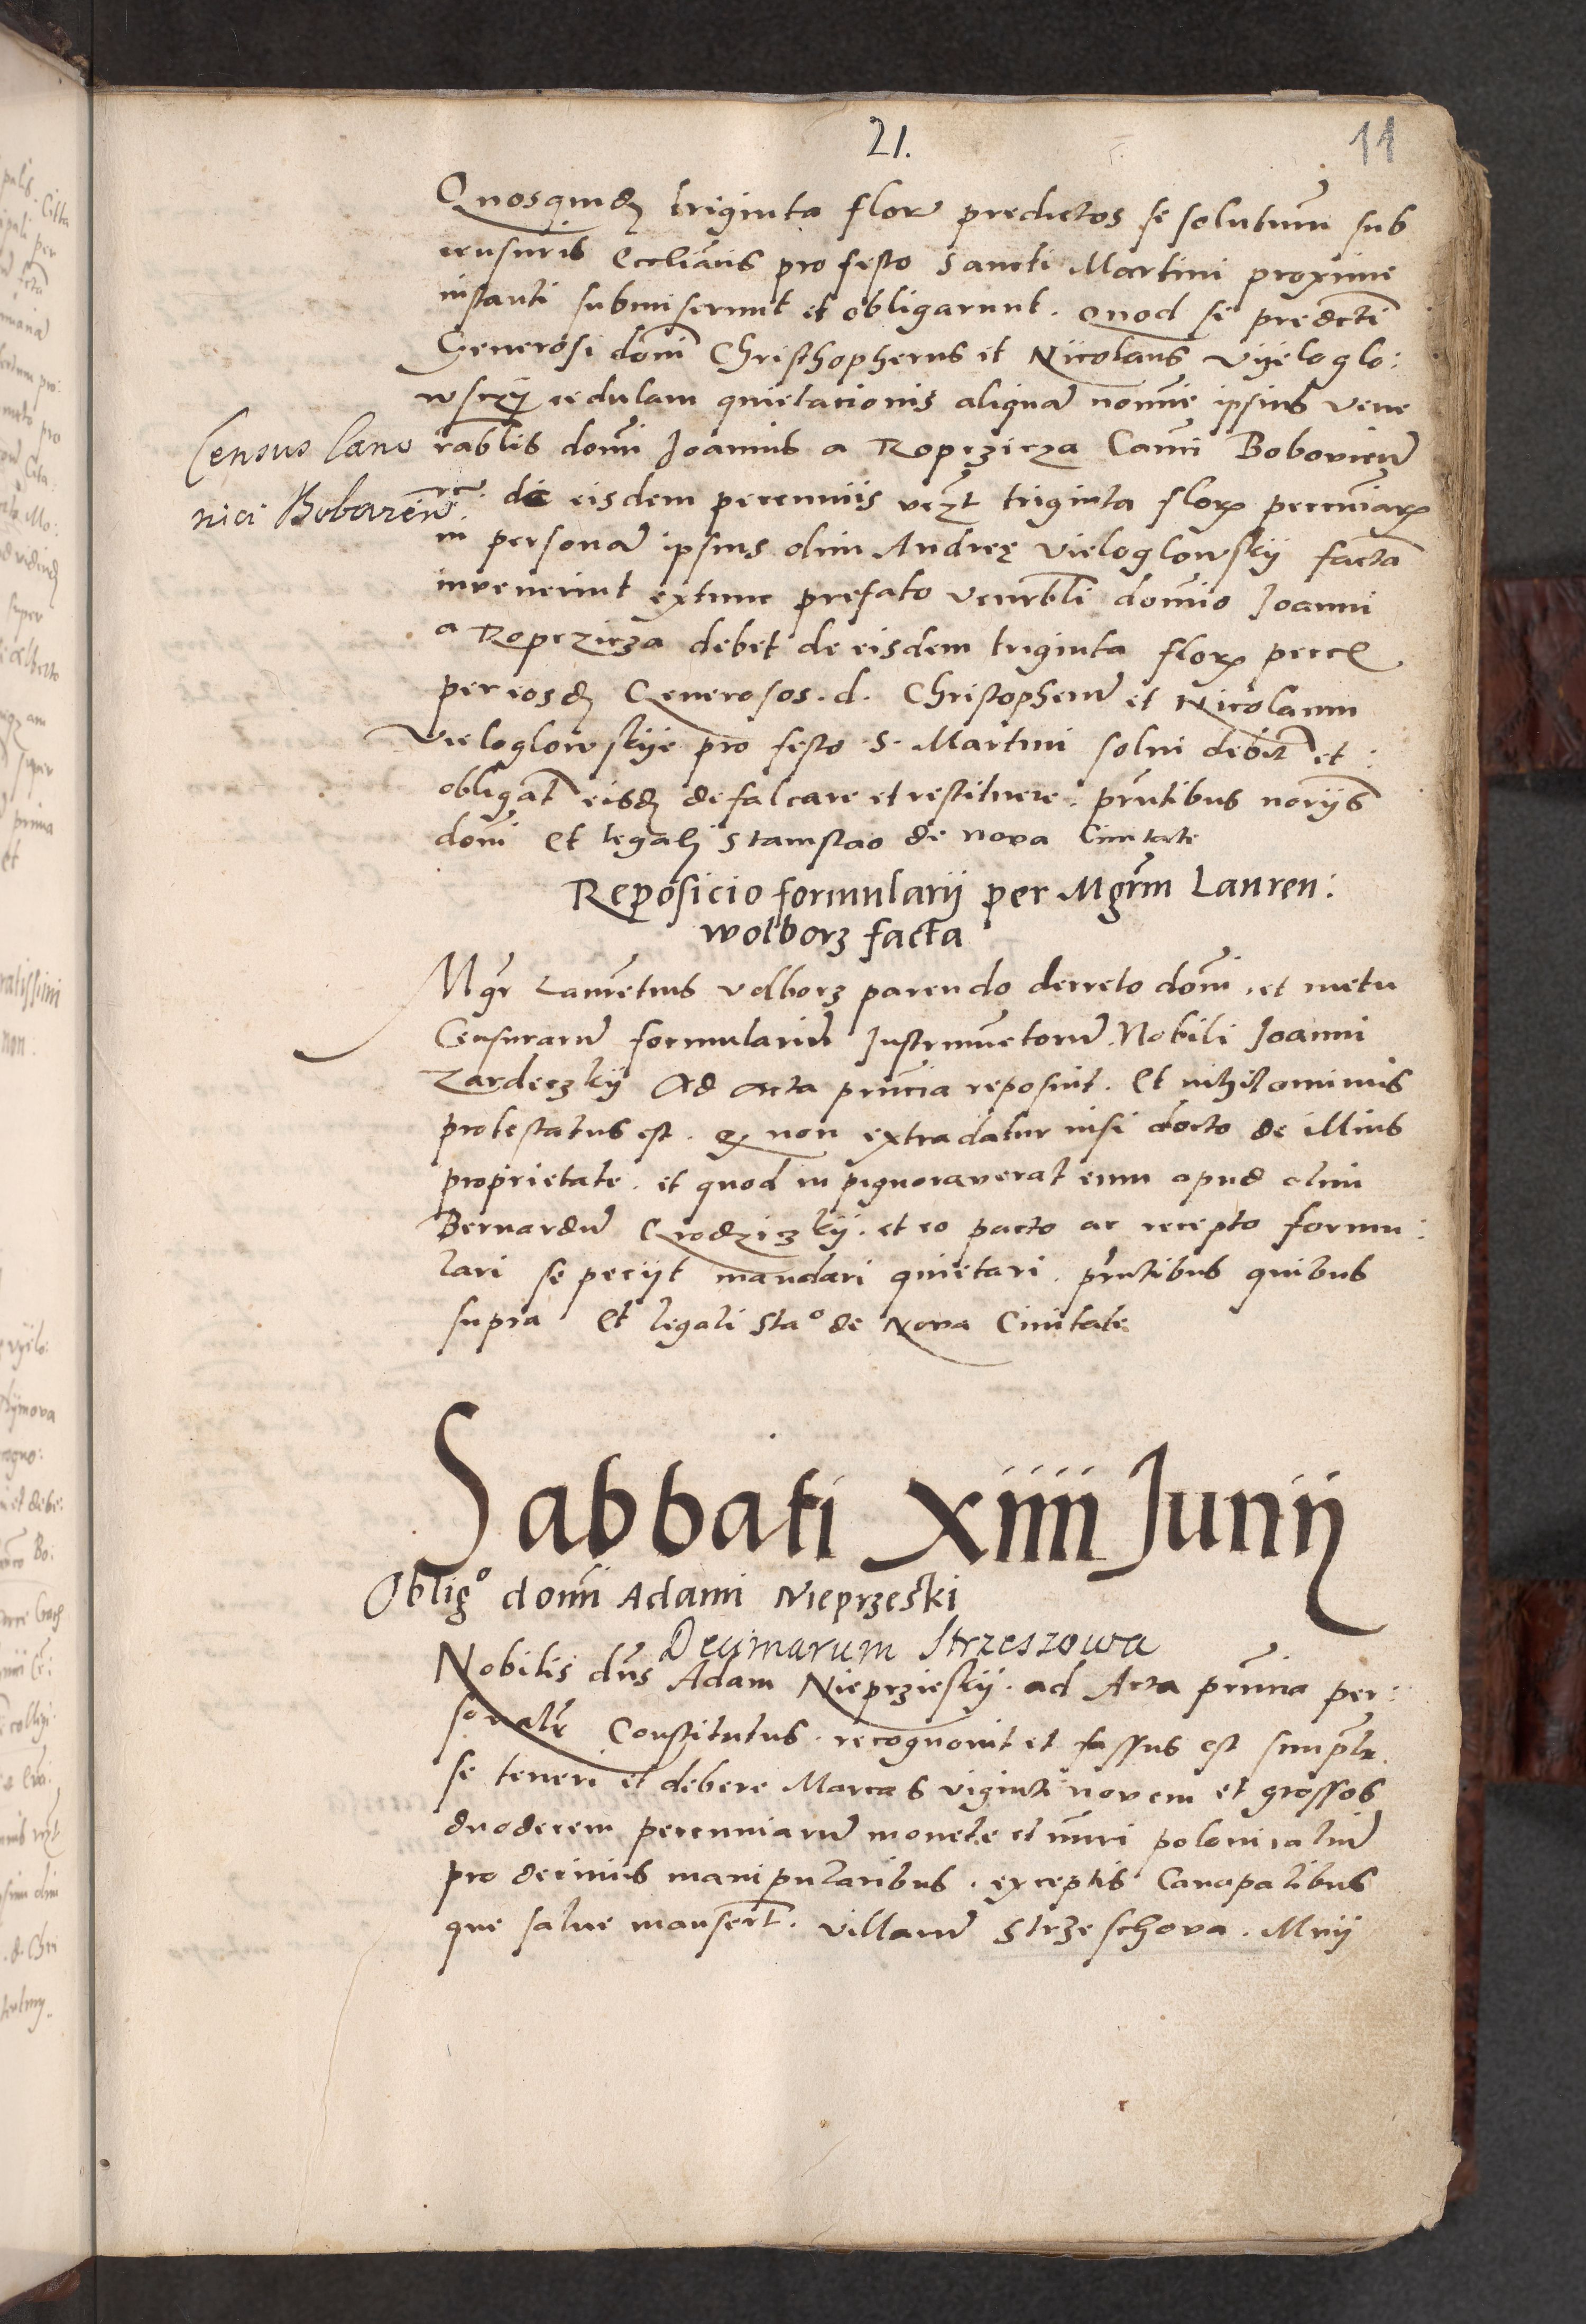 21.
11
Quosquidē triginta flor predictos se soluturū sub
censuris Eccliāis pro festo Sancti Martini proxime
instanti submiserunt et obligarunt. Quod si predicti
Generosi dōni Christhopherus et Nicolaus Vyeloglo:
wsczy cedulam quietacionis aliquā nomīe ipsius vene
rablis domī Joannis a Ropczicza Canōi Bobovicēn
Census Cano
nici Bobovicēn
de eisdem pecuniis vezt triginta florz pecuniarz
in personā ipsius olim Andreę Vieloglowskÿ factā
invenerint extunc prefato Venrbli domīo Joanni
a Ropczicza debet de eisdem triginta florz pecc
per eosdē Generosos. d. Christopherū et Nicolaum
Vieloglowskÿe pro festo S. Martini solui debit et:
obligat eisdē defalcare et restituere. prntibus noriÿs
domī Et legali Stanislao de nova Ciuitate
Reposicio formularÿ per Mgrm Lauren:
wolborz facta
Mgr Laurētius volborz parendo decreto domī. et metu
Censurarū formulariū Instrumētorū. Nobili Joanni
Zardeczkÿ Ad Acta prntia reposuit. Et nihilominus
protestatus est. q non extradatur nisi docto de illius
proprietate. et quod inpignoraverat eum apud olim
Bernardū Grodziczkÿ. et eo pacto ac recepto formu:
lari se peciÿt mandari quietari. prntibus quibus
supra Et legali Stao de Nova Ciuitate
Sabbati xiiii Junÿ
Obligo domī Adami Nieprzeski
Decimarum Strzeszowa
Nobilis dns Adam Nieprzieskÿ. ad Acta prntia per:
sonalr Constitutus. recognovit et fassus est simplr.
se teneri et debere Marcas viginti novem et grossos
duodecem pecuniarū monete et nūri polonicaliū
pro decimis manipularibus. exceptis Canapalibus
que salue manserūt. villarū Strzeschova. Mnÿ